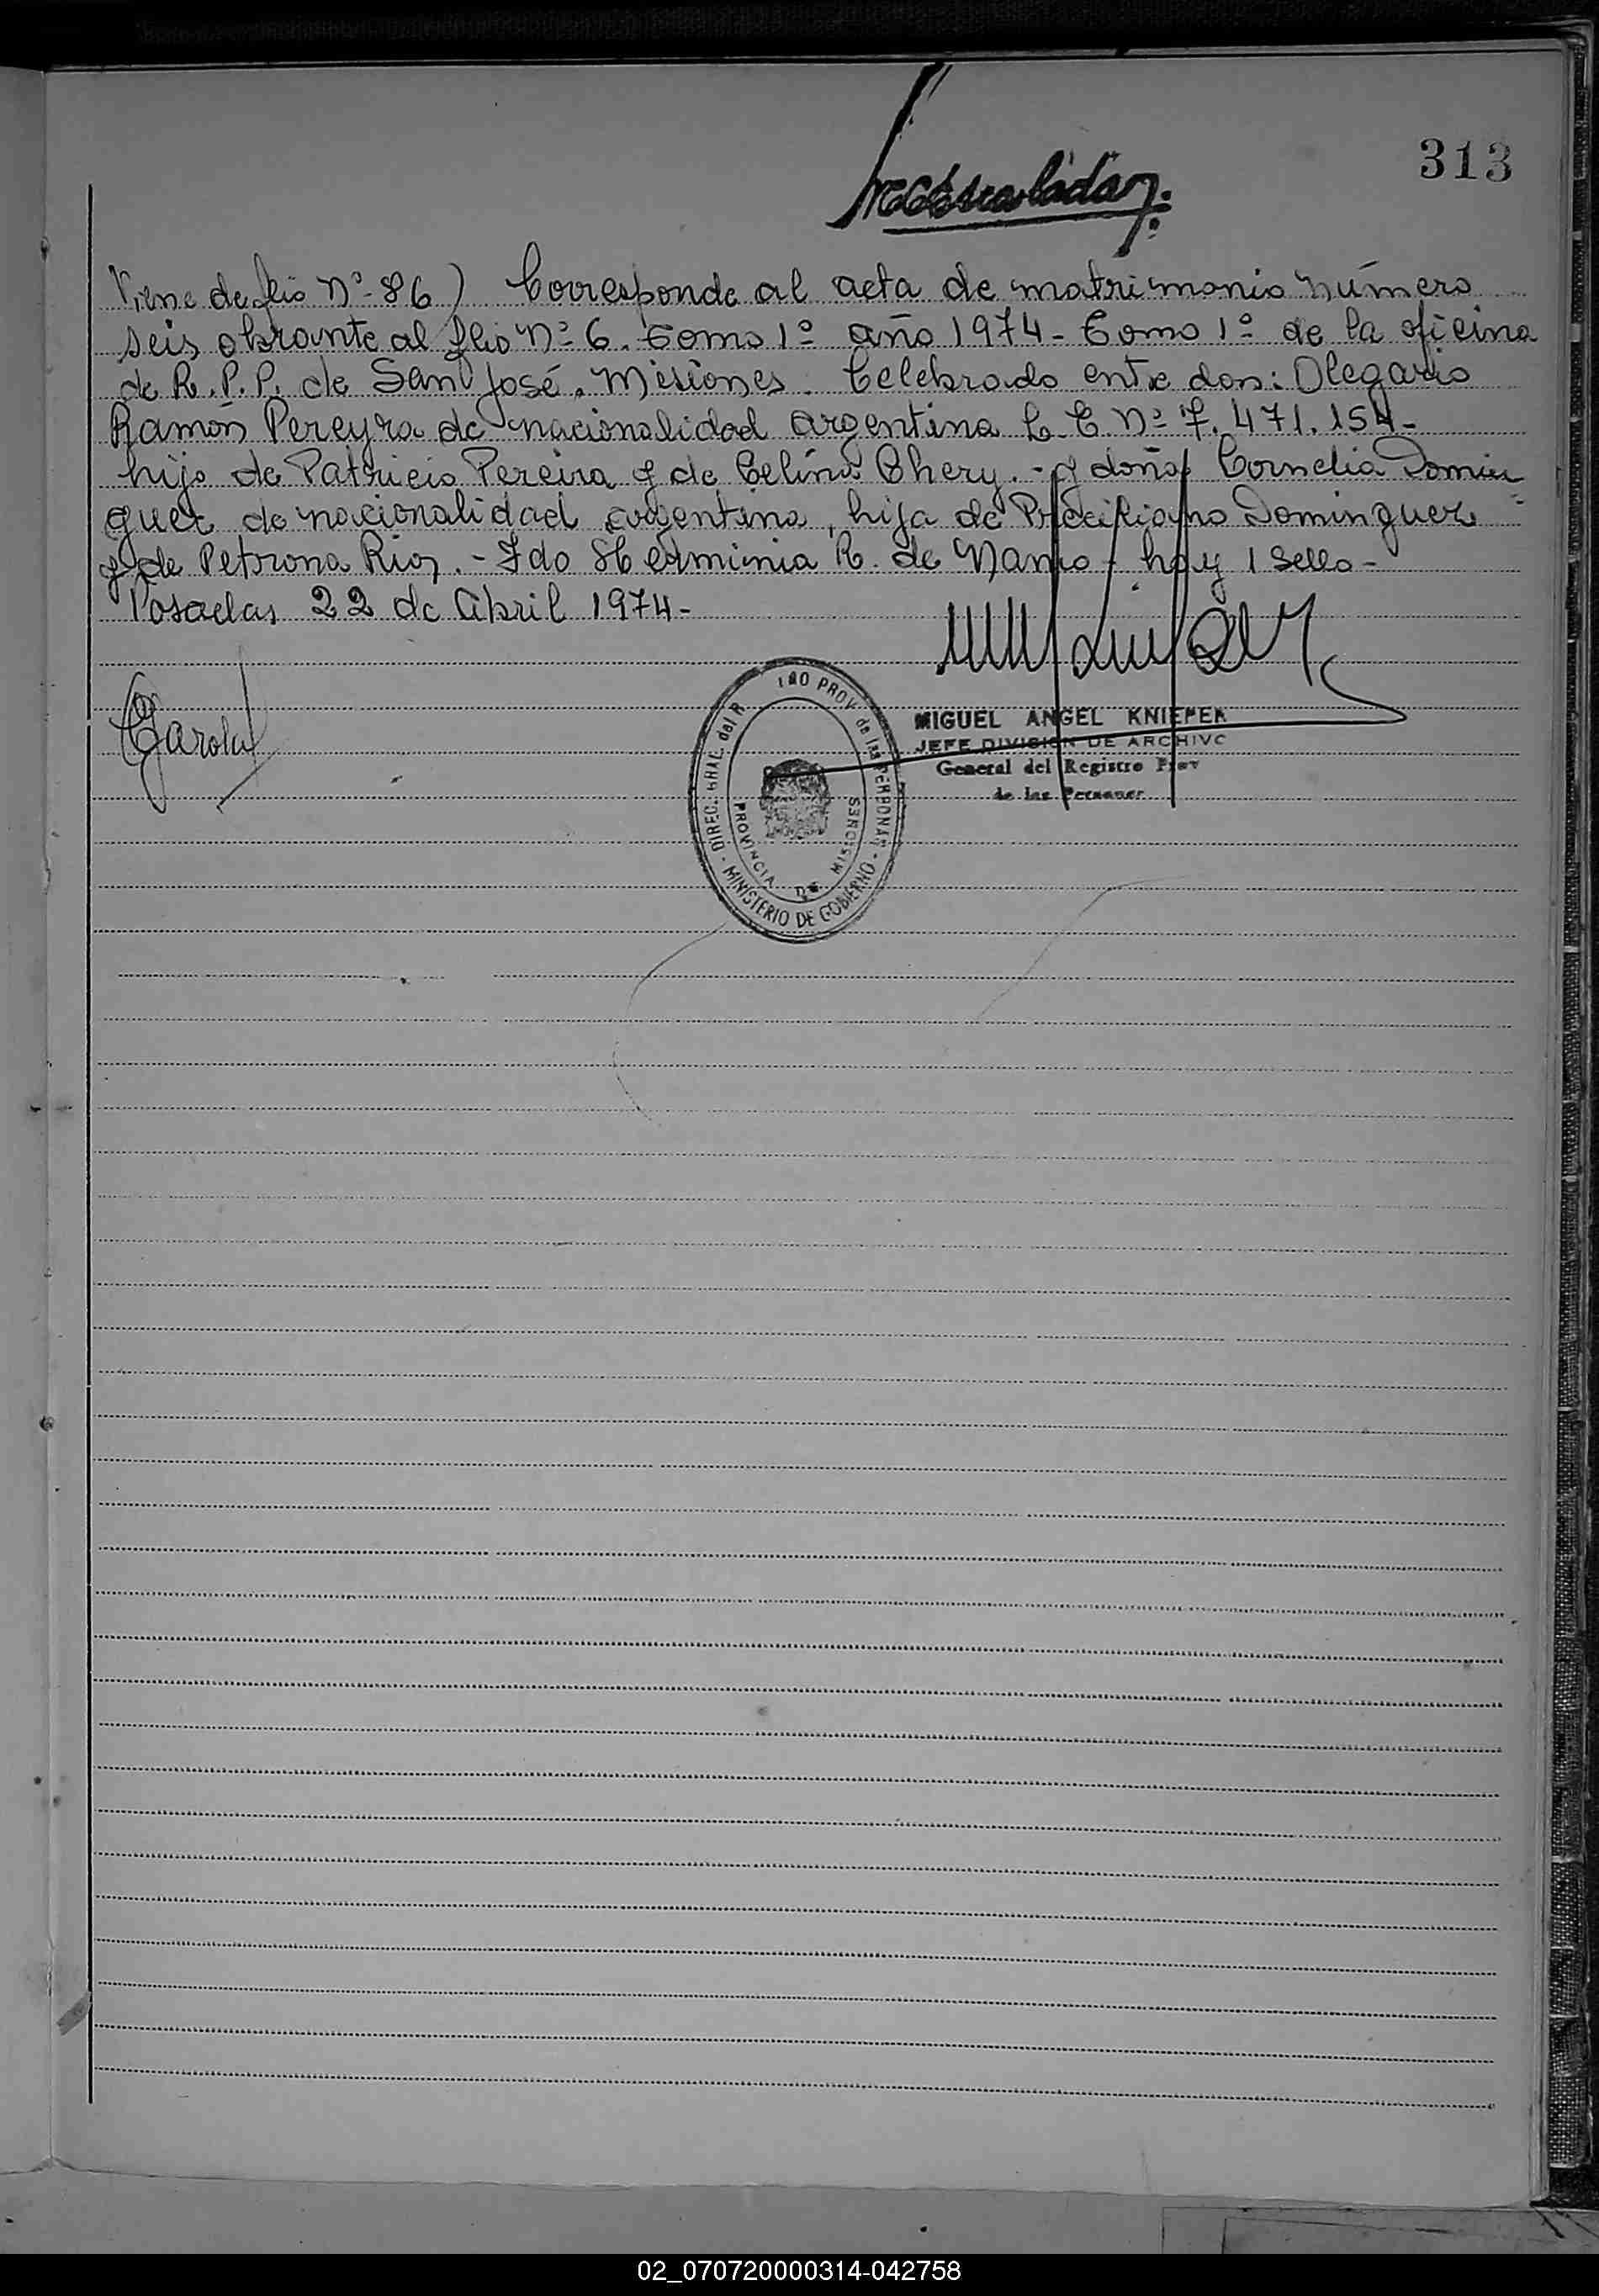 313
Viene de flio Nº-86) Corresponde al acta de matrimonio número
seis obrante al flio Nº 6. Tomo 1º año 1974- Tomo 1º de la oficina
de R.P.P. de San José, Misiones. Celebrado entre don: Olegario
Ramón Pereyra de nacionalidad argentina L.E. Nº 7.471.154-
hijo de Patricio Pereira y de Celina Chery.- y doña Cornelia Domin
guez de nacionalidad argentina, hija de Dominguez
y de Petrona Rios.- Fdo Herminia R. de - hay 1 sello-
Posadas 22 de Abril 1974-
MIGUEL ANGEL KNIEPER
JEFE DIVISION DE ARCHIVO
General del Registro Prov
de las Personas
DIREC. GRAL. del R PROV de las PERSONAS - MINISTERIO DE GOBIERNO -
PROVINCIA DE MISIONES
02_070720000314-042758